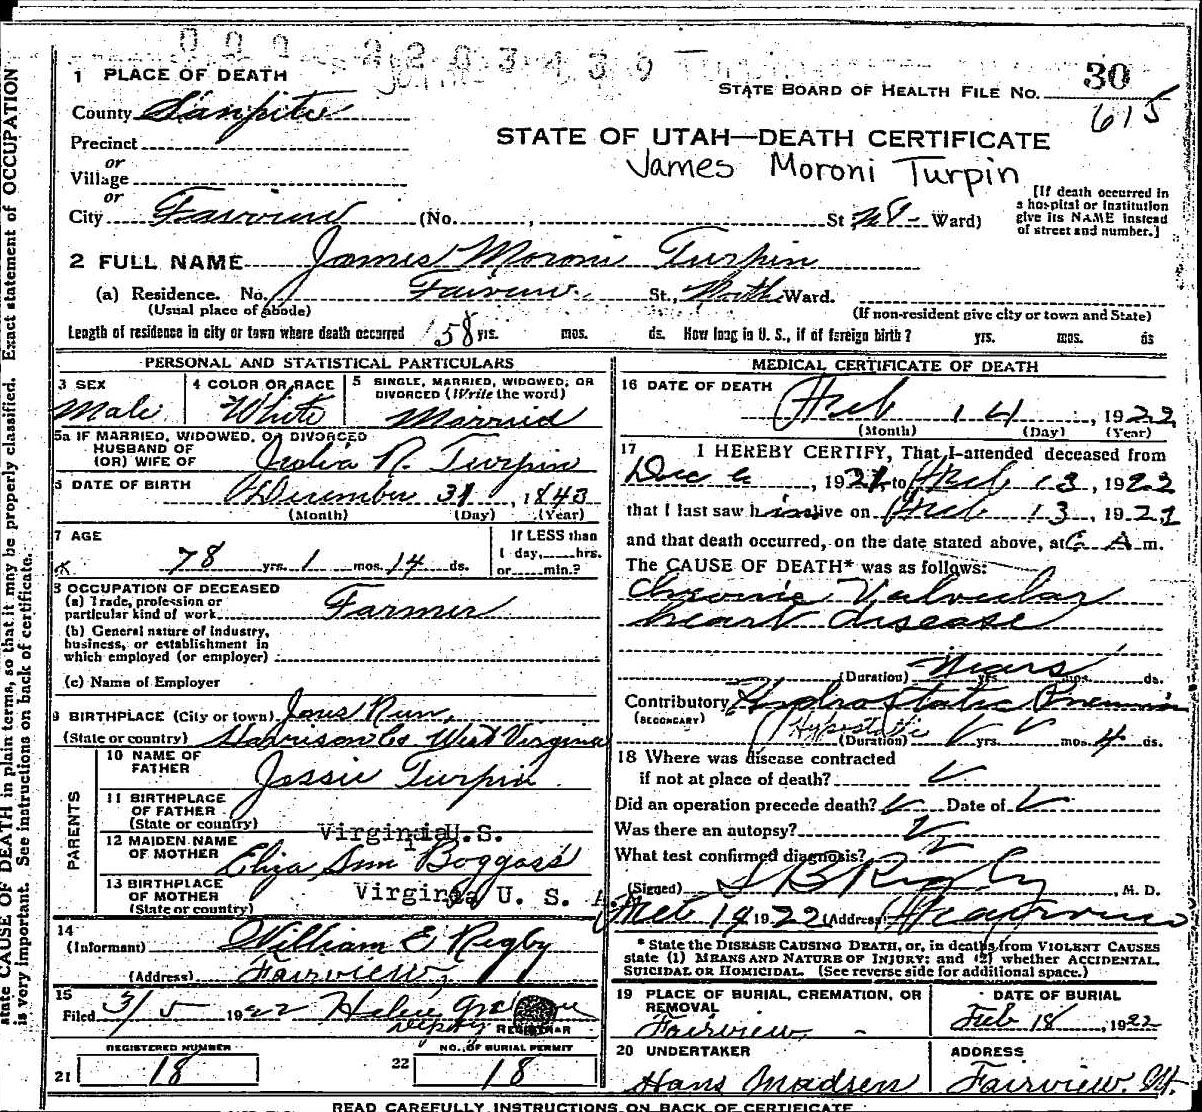 1 PLACE OF DEATH
STATE BOARD OF HEALTH FILE NO. 30
County Sanpete
615
Precinct
STATE OF UTAH—DEATH CERTIFICATE
or
James Moroni Turpin
Village
or
[If death occurred in a hospital or institution give its NAME instead of street and number.]
City Fairview (No. , St Ward)
2 FULL NAME James Moroni Turpin
(a) Residence. No. Fairview St., North Ward.
(Usual place of abode)
(If non-resident give city or town and State)
Length of residence in city or town where death occurred 58 yrs. mos. ds. How long in U. S., if of foreign birth? yrs. mos. ds
PERSONAL AND STATISTICAL PARTICULARS
3 SEX
Male
4 COLOR OR RACE
White
5 SINGLE, MARRIED, WIDOWED, OR DIVORCED (Write the word)
Married
5a IF MARRIED, WIDOWED, OR DIVORCED
HUSBAND OF
(OR) WIFE OF R. Turpin
6 DATE OF BIRTH December 31, 1843
(Month) (Day) (Year)
7 AGE
78 yrs. 1 mos. 14 ds.
If LESS than
1 day, hrs.
or min.?
8 OCCUPATION OF DECEASED
(a) Trade, profession or
particular kind of work Farmer
(b) General nature of industry,
business, or establishment in
which employed (or employer)
(c) Name of Employer
9 BIRTHPLACE (City or town) Run,
(State or country) Harrison Co West Virginia
PARENTS
10 NAME OF
FATHER Jessie Turpin
11 BIRTHPLACE
OF FATHER
(State or country) Virginia U.S.
12 MAIDEN NAME
OF MOTHER Eliza Ann Boggass
13 BIRTHPLACE
OF MOTHER Virginia U. S. A
(State or country)
14
(Informant) William E Rigby
(Address) Fairview,
15
Filed 3/5 1922 Helen
Deputy REGISTRAR
REGISTERED NUMBER
21 18
NO. OF BURIAL PERMIT
22 18
MEDICAL CERTIFICATE OF DEATH
16 DATE OF DEATH
Feb 14, 1922
(Month) (Day) (Year)
17 I HEREBY CERTIFY, That I attended deceased from
Dec 6, 1921 to Feb 13, 1922
that I last saw him alive on Feb 13, 192
and that death occurred, on the date stated above, at 6 A m.
The CAUSE OF DEATH* was as follows:
Chronic Valvular
heart disease
(Duration) Years yrs. mos. ds.
Contributory Hydrostatic Pneumonia
(SECONDARY) Hypostatic
(Duration) yrs. mos. 4 ds.
18 Where was disease contracted
if not at place of death?
Did an operation precede death? Date of
Was there an autopsy?
What test confirmed diagnosis?
(Signed) Rigby, M. D.
Feb 14 1922 (Address) Fairview
* State the DISEASE CAUSING DEATH, or, in deaths from VIOLENT CAUSES
state (1) MEANS AND NATURE OF INJURY; and (2) whether ACCIDENTAL,
SUICIDAL OR HOMICIDAL. (See reverse side for additional space.)
19 PLACE OF BURIAL, CREMATION, OR
REMOVAL
Fairview,
DATE OF BURIAL
Feb 18, 1922
20 UNDERTAKER
Hans Madsen
ADDRESS
Fairview. Ut.
READ CAREFULLY INSTRUCTIONS ON BACK OF CERTIFICATE
state CAUSE OF DEATH in plain terms, so that it may be properly classified. Exact statement of OCCUPATION
is very important. See instructions on back of certificate.